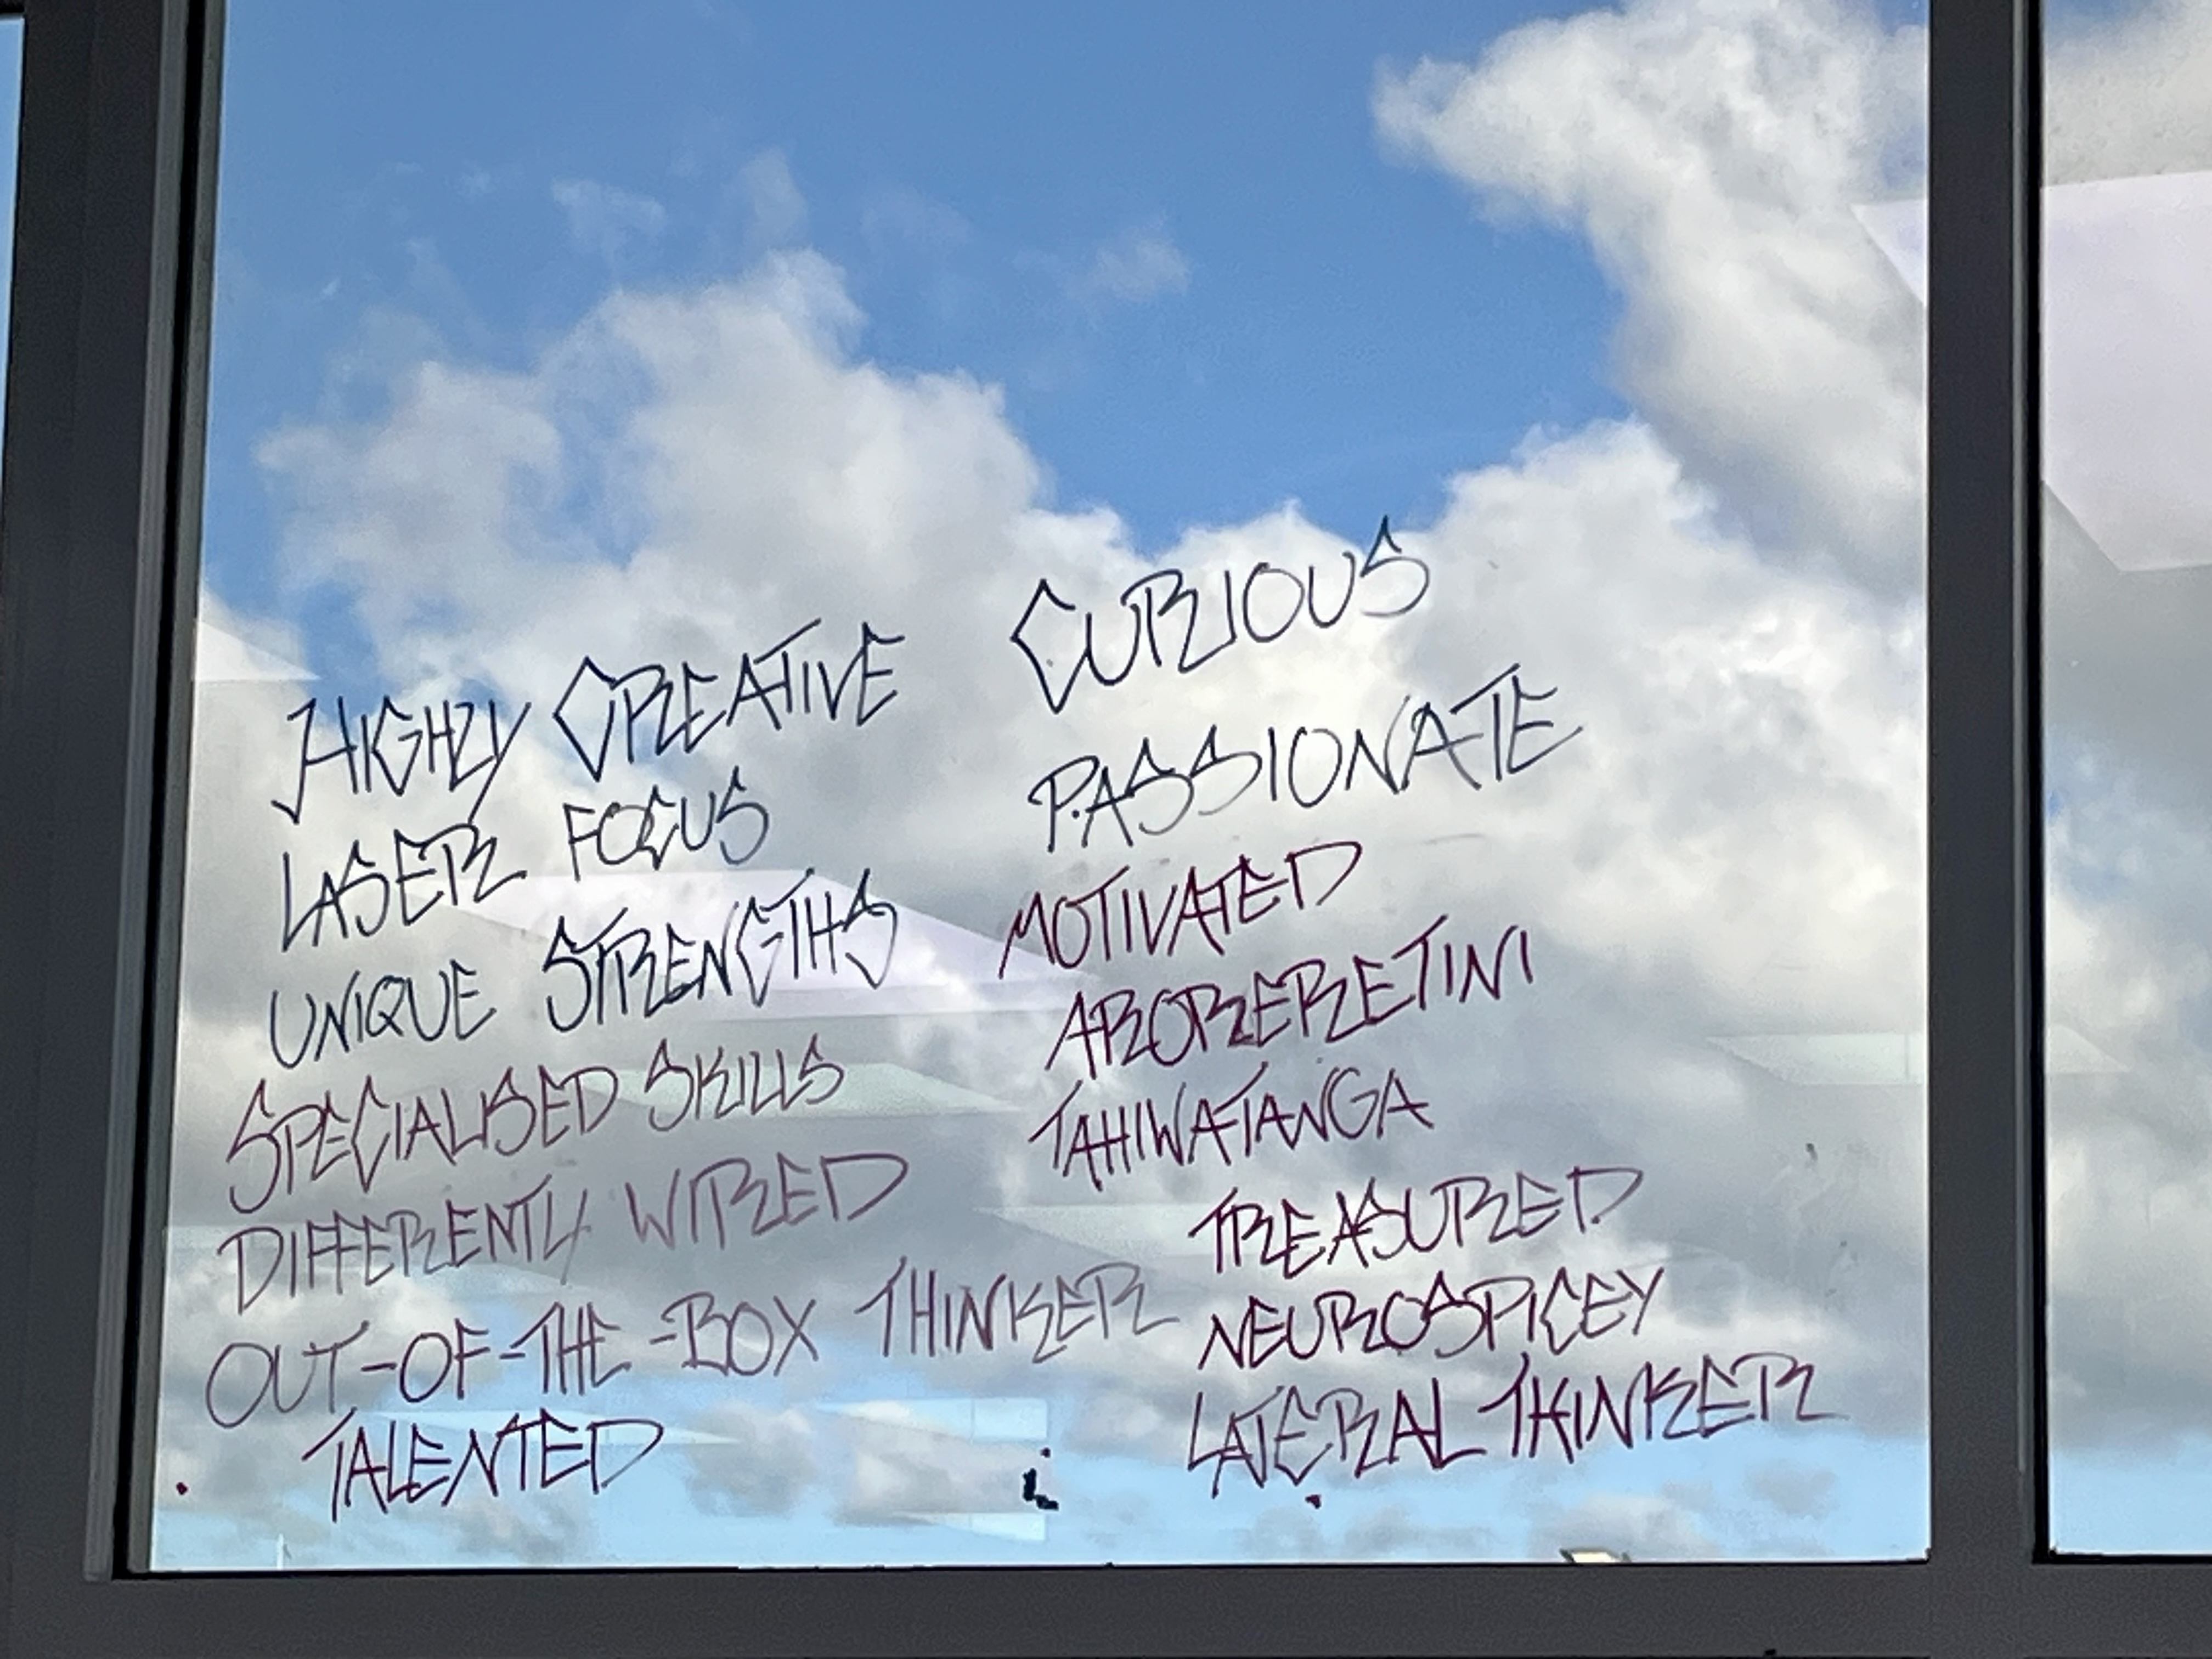 HIGHLY CREATIVE
LASER FOCUS
UNIQUE STRENGTHS
SPECIALISED SKILLS
DIFFERENTLY WIRED
OUT-OF-THE-BOX THINKER
TALENTED
CURIOUS
PASSIONATE
MOTIVATED
ARORERETINI
TAHIWATANGA
TREASURED
NEUROSPICEY
LATERAL THINKER